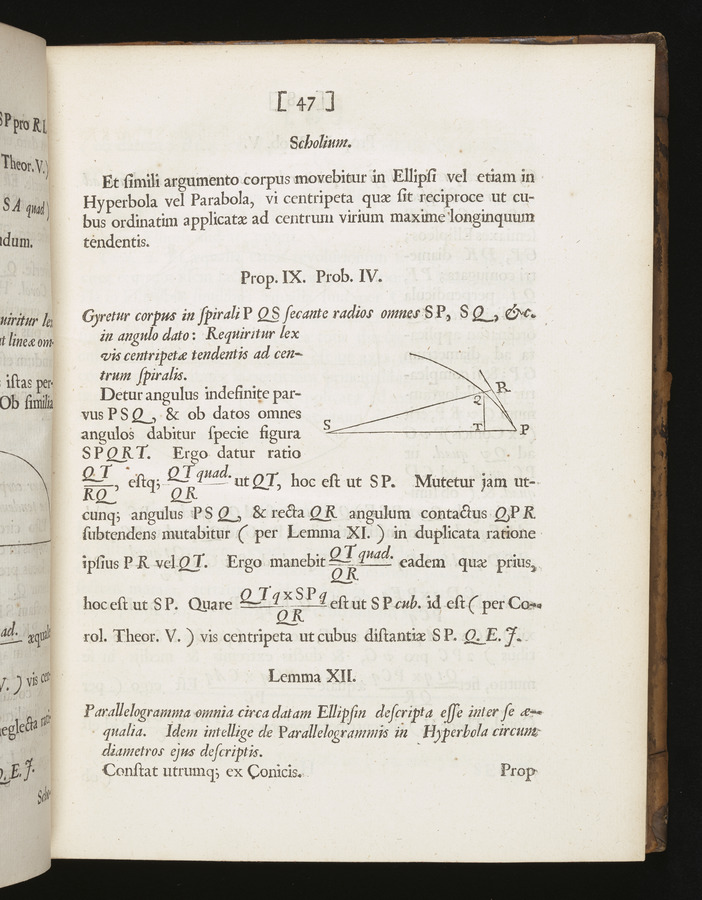 [ 47 ]
Scholium.
Et simili argumento corpus movebitur in Ellipsi vel etiam in
Hyperbola vel Parabola, vi centripeta quæ sit reciproce ut cu-
bus ordinatim applicatæ ad centrum virium maxime longinquum
tendentis.
Prop. IX. Prob. IV.
Gyretur corpus in spirali P Q S secante radios omnes S P, S Q, &c.
in angulo dato: Requiritur lex
vis centripetæ tendentis ad cen-
trum spiralis.
Detur angulus indefinite par-
vus P S Q, & ob datos omnes
angulos dabitur specie figura
S P Q R T. Ergo datur ratio
Q T / R Q, estq; Q T quad. / Q R ut Q T, hoc est ut S P. Mutetur jam ut-
cunq; angulus P S Q, & recta Q R angulum contactus Q P R
subtendens mutabitur ( per Lemma XI. ) in duplicata ratione
ipsius P R vel Q T. Ergo manebit Q T quad. / Q R eadem quæ prius,
hoc est ut S P. Quare Q T q x S P q / Q R est ut S P cub. id est ( per Co-
rol. Theor. V. ) vis centripeta ut cubus distantiæ S P. Q. E. J.
Lemma XII.
Parallelogramma omnia circa datam Ellipsin descripta esse inter se æ-
qualia. Idem intellige de Parallelogrammis in Hyperbola circum
diametros ejus descriptis.
Constat utrumq; ex Conicis.
Prop
S
Q
R
T
P
S P pro R L
Theor. V.)
S A quad
dum.
quiritur lex
istas per-
Ob similia
ad.
æqual
V. ) vis cen
neglecta rati
Q. E. J.
Scho